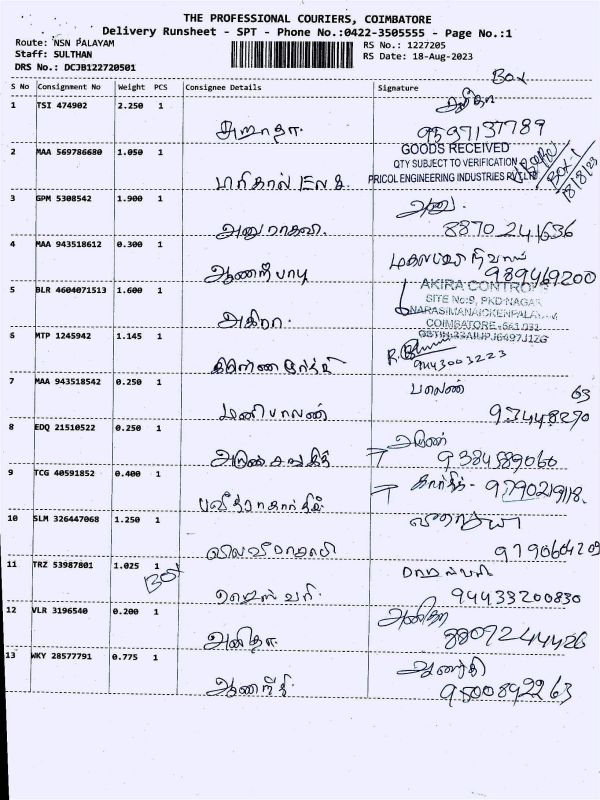 THE PROFESSIONAL COURIERS, COIMBATORE
Delivery Runsheet - SPT - Phone No.:0422-3505555 - Page No.:1
Route: NSN PALAYAM
Staff: SULTHAN
DRS No.: DCJB122720501
RS No.: 1227205
RS Date: 18-Aug-2023
S No Consignment No Weight PCS Consignee Details Signature
Box
1 TSI 474902 2.250 1
9597137789
2 MAA 569786680 1.050 1
GOODS RECEIVED
QTY SUBJECT TO VERIFICATION
PRICOL ENGINEERING INDUSTRIES PVT LTD
Box-1
18/8/23
3 GPM 5308542 1.900 1
அனு
8870 241636
4 MAA 943518612 0.300 1
989469200
5 BLR 4604071513 1.600 1
அகிரா
AKIRA CONTROLS
SITE No:9, PKD NAGAR
NARASIMANAICKENPALAYAM
COIMBATORE-641 031
6 MTP 1245942 1.145 1
9443003223
7 MAA 943518542 0.250 1
மணிபாலன்
பாலன் 63
97448290
8 EDQ 21510522 0.250 1
அருண்
9384589060
9 TCG 40591852 0.400 1
கார்த்திக் - 9790219118
10 SLM 326447068 1.250 1
9790604209
11 TRZ 53987801 1.025 1
BOX
94433200830
12 VLR 3196540 0.200 1
அனிதா
அனிதா
8807244426
13 WKY 28577791 0.775 1
ஆனந்தி
ஆனந்தி
9500892263